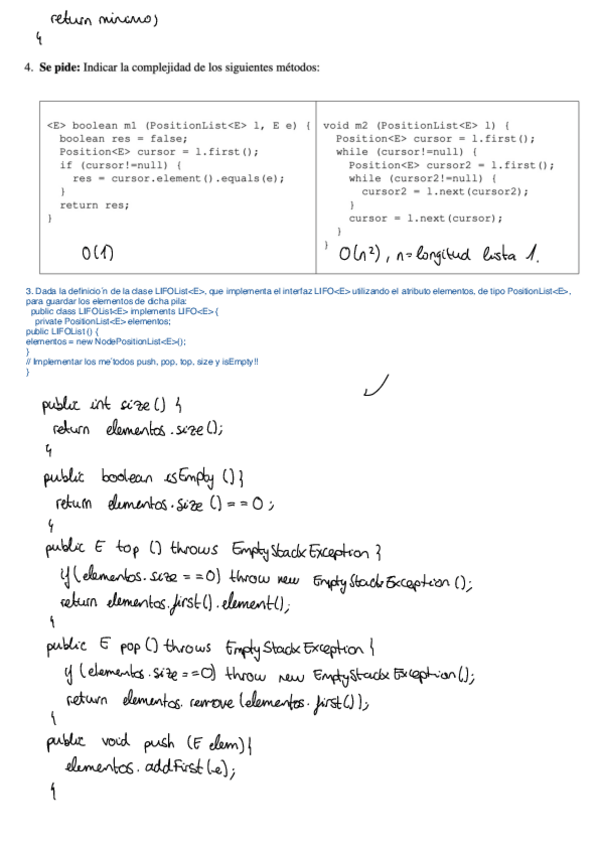 return minimo;
}
4. Se pide: Indicar la complejidad de los siguientes métodos:
<E> boolean m1 (PositionList<E> l, E e) {
boolean res = false;
Position<E> cursor = l.first();
if (cursor!=null) {
res = cursor.element().equals(e);
}
return res;
}
O(1)
void m2 (PositionList<E> l) {
Position<E> cursor = l.first();
while (cursor!=null) {
Position<E> cursor2 = l.first();
while (cursor2!=null) {
cursor2 = l.next(cursor2);
}
cursor = l.next(cursor);
}
}
O(n²), n=longitud lista l.
3. Dada la definicio´n de la clase LIFOList<E>, que implementa el interfaz LIFO<E> utilizando el atributo elementos, de tipo PositionList<E>,
para guardar los elementos de dicha pila:
public class LIFOList<E> implements LIFO<E> {
private PositionList<E> elementos;
public LIFOList() {
elementos = new NodePositionList<E>();
}
// Implementar los me´todos push, pop, top, size y isEmpty!!
}
public int size() {
return elementos.size();
}
public boolean isEmpty () {
return elementos.size () == 0;
}
public E top () throws EmptyStackException {
if (elementos.size == 0) throw new EmptyStackException ();
return elementos.first().element();
}
public E pop () throws EmptyStackException {
if (elementos.size == 0) throw new EmptyStackException ();
return elementos.remove (elementos.first());
}
public void push (E elem) {
elementos.addFirst (e);
}